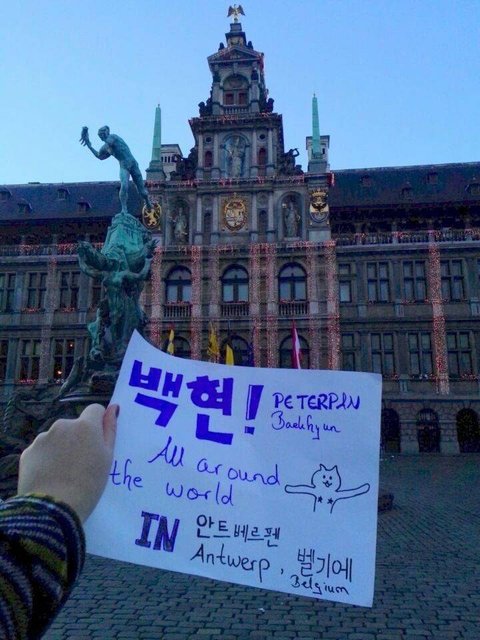 백현! PETERPAN
Baekhyun
All around
the world
IN 안트베르펜
Antwerp, 벨기에
Belgium